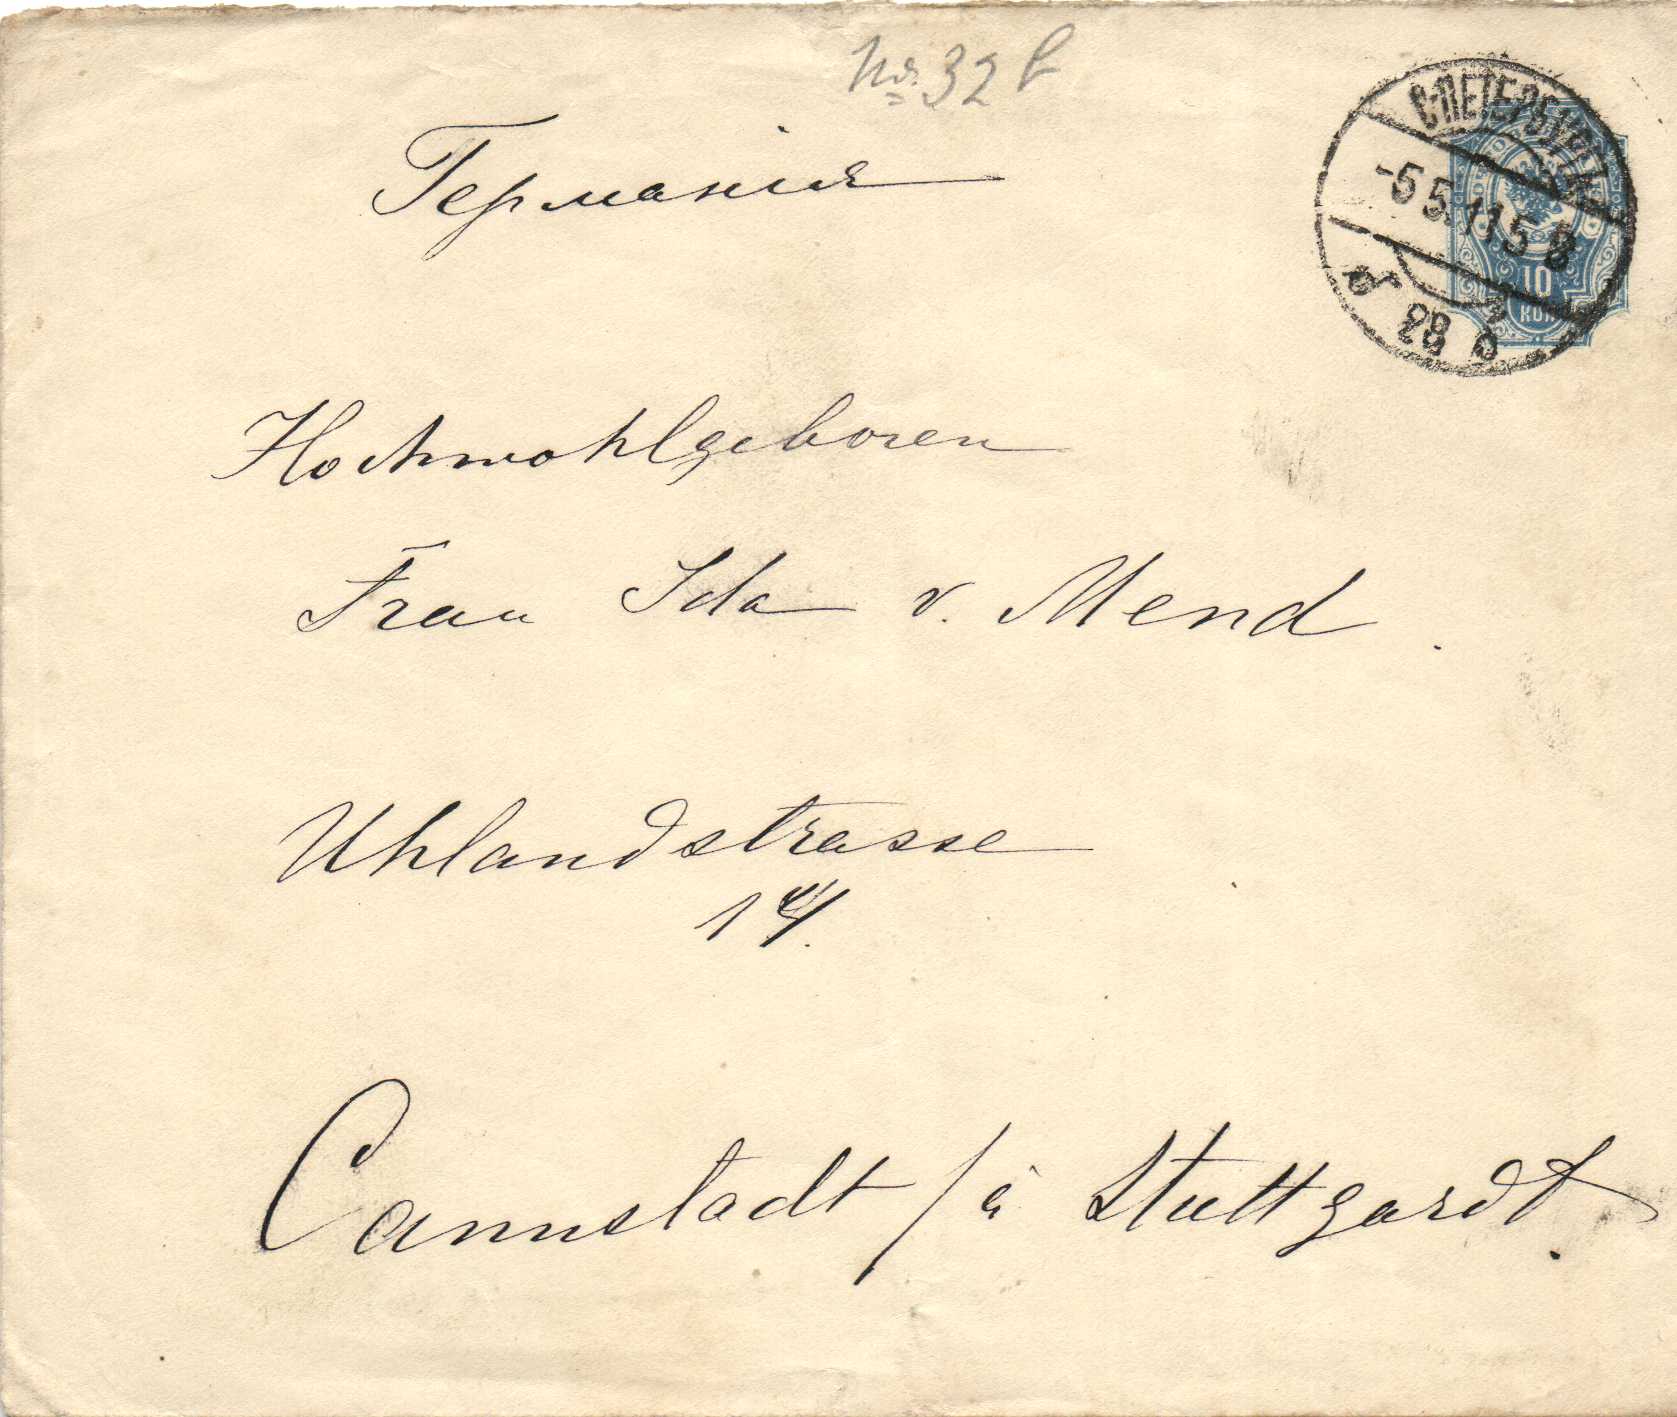 No. 32 b
Германія
С-ПЕТЕРБУРГЪ
-5 5.11 5 В
10
КОП
Hochwohlgeboren
Frau Ida v. Mend.
Uhlandstrasse
14.
Cannstadt / a Stuttgardt.